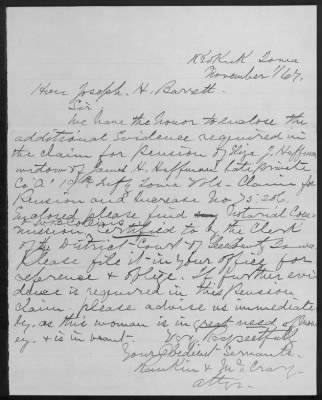 Keokuk Iowa
November 1/67.
Hon Joseph. H. Barrett.
Sir
We have the Honor to Enclose the
additional Evidence required in
the Claim for Pension of Eliza J. Hoffman
widow of James H. Hoffman late private
Co "A" 19th Infty Iowa Vols - Claim for
Pension and Increase No 75.206.
Inclosed please find Notarial Com-
mission Certified to by the Clerk
of the District-Court of Iowa.
Please file it in your office for
reference & oblige. If further evi
dence is required in this Pension
claim, please advise us immediate
ly, as this woman is in great need of Mon
ey. & is in want.
Very Respectfull
Your Obedient Servants.
Rankin & McCrary.
attys.